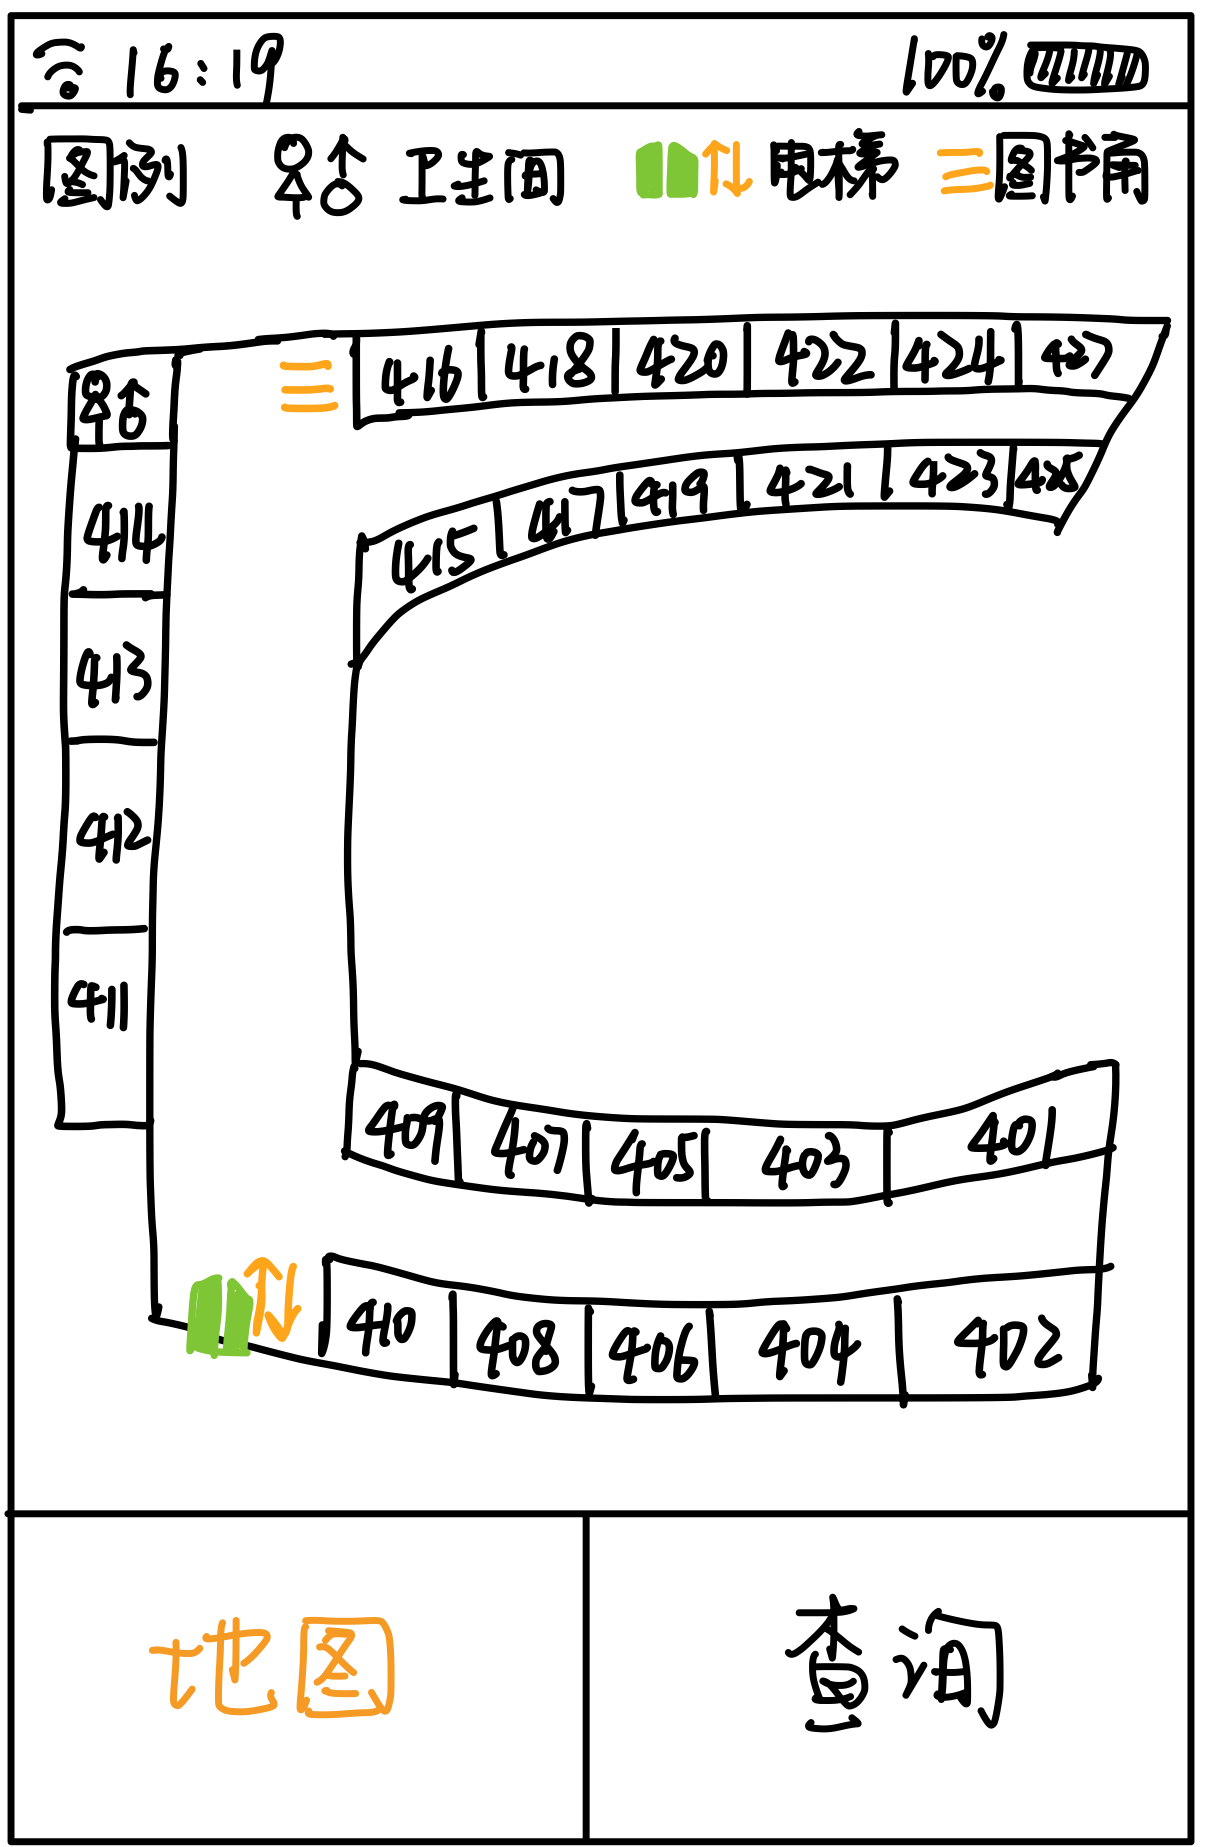 16:19 100%
图例 卫生间 电梯 图书角
416 418 420 422 424 427
415 417 419 421 423 425
414
413
412
411
409 407 405 403 401
410 408 406 404 402
地图 查询